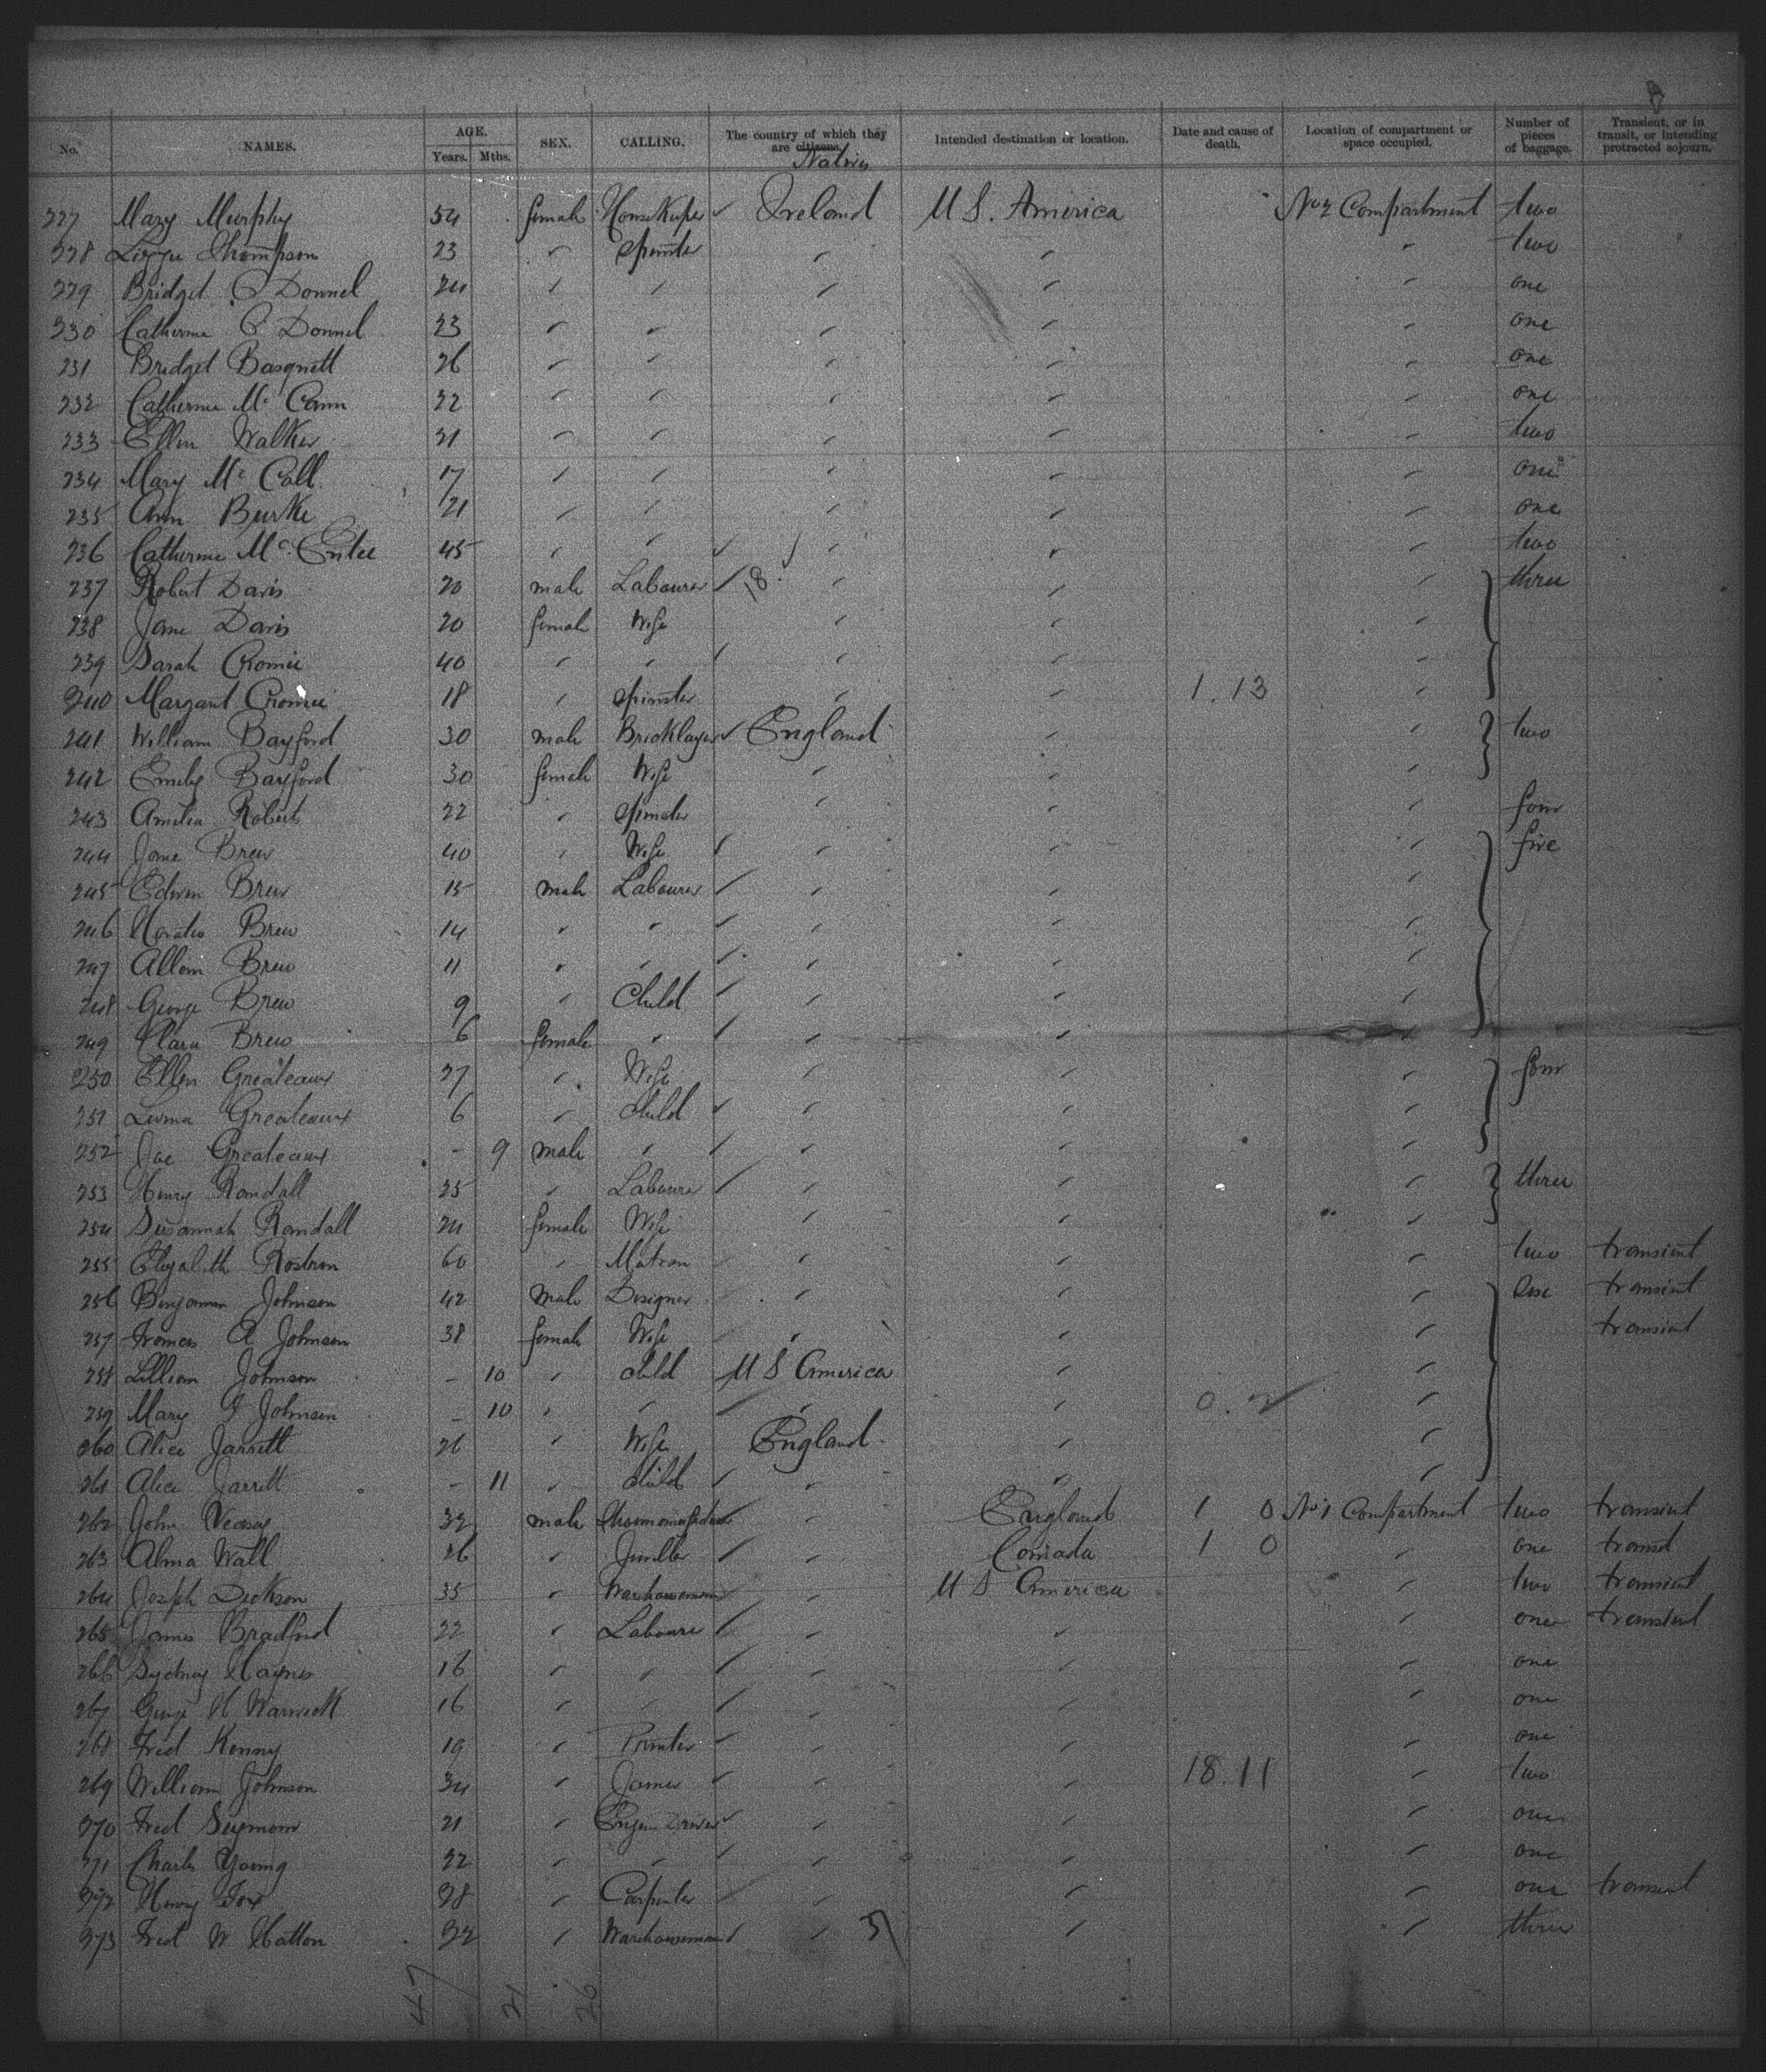 8
No. NAMES. AGE. Years. Mths. SEX. CALLING. The country of which they are citizens. Natives Intended destination or location. Date and cause of death. Location of compartment or space occupied. Number of pieces of baggage. Transient, or in transit, or intending protracted sojourn.
227 Mary Murphy 54 female HouseKeeper Ireland U S. America No 2 Compartment two
228 Lizzie Thompson 23 " Spinster " " " two
229 Bridget O Donnel 24 " " " " " one
230 Catherine O Donnel 23 " " " " " one
231 Bridget Basquett 26 " " " " " one
232 Catherine Mc Cann 22 " " " " " one
233 Ellen Walker 21 " " " " " two
234 Mary Mc Call 17 " " " " " one
235 Ann Burke 21 " " " " " one
236 Catherine Mc Entee 45 " " " " " two
237 Robert Davis 20 male Labourer 18 " " " three
238 Jane Davis 20 female Wife " " "
239 Sarah Cromie 40 " " " " "
240 Margaret Cromie 18 " Spinster " " 1.13 "
241 William Bayford 30 male Bricklayer England " " two
242 Emily Bayford 30 female Wife " " "
243 Amelia Robert 22 " Spinster " " " four
244 Jane Brew 40 " Wife " " " five
245 Edwin Brew 15 male Labourer " " "
246 Horatio Brew 14 " " " " "
247 Allom Brew 11 " " " " "
248 George Brew 9 " Child " " "
249 Clara Brew 6 female " " " "
250 Ellen Greateaux 27 " Wife " " " four
251 Greateaux 6 " Child " " "
252 Joe Greateaux - 9 male " " " "
253 Henry Randall 25 " Labourer " " " three
254 Susannah Randall 24 female Wife " " "
255 Elizabeth Rostron 60 " Matron " " " two transient
256 Benjamin Johnson 42 Male Designer " " " transient
257 Frances A Johnson 38 female Wife " " " transient
258 Lillian Johnson - 10 " child U S America " "
259 Mary J Johnson - 10 " " " " 0.2 "
260 Alice Jarrett 26 " Wife England " "
261 Alice Jarrett - 11 " child " " "
262 John Veasey 32 male " England 1 0 No 1 Compartment two transient
263 Alma Wall 26 " Jeweller " Canada 1 0 " one transt
264 Joseph Dickson 35 " Warehouseman " U S America " two transient
265 James Bradford 22 " Labourer " " " one transient
266 Sydney Haynes 16 " " " " " one
267 George H Warwick 16 " " " " " one
268 Fred Kenny 19 " Printer " " " one
269 William Johnson 34 " " " 18.11 " two
270 Fred Seymour 21 " Engine Driver " " " one
271 Charles Young 22 " " " " " one
272 Henry Fox 28 " Carpenter " " " one transient
273 Fred W Hatton 32 " Warehouseman " " " three
47 21 26